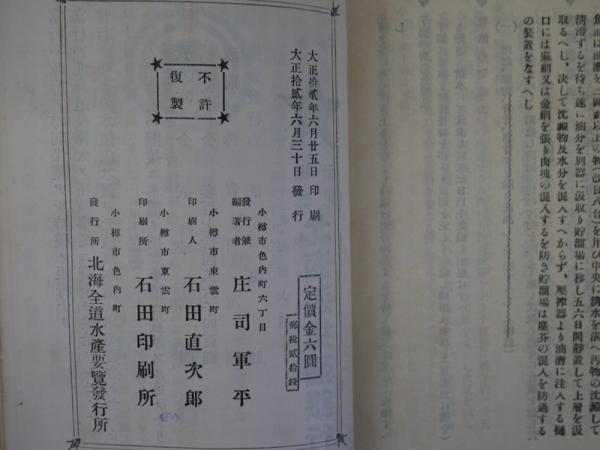 魚油は油漕を二個或以上の物(改良八台)を用ひ中央に清水を満へ汚物の沈澱して
清澄するを待ち速に油分を別器に汲取り貯溜場に移し五六日間靜置して上層を汲
取るへし、決して沈澱物及水分を混入すへからず、壓搾器より油漕に注入する樋
口には麻網又は金網を張り肉塊の混入するを防き貯溜場は塵芥の混入を防遏する
の装置をなすへし
大正拾貳年六月廿五日印刷
大正拾貳年六月三十日發行
不許
復製
定價金六圓
郵稅貳拾錢
小樽市色內町六丁目
發行兼
編著者 庄司軍平
小樽市東雲町
印刷人 石田直次郎
小樽市東雲町
印刷所 石田印刷所
小樽市色內町
發行所 北海全道水產要覽發行所